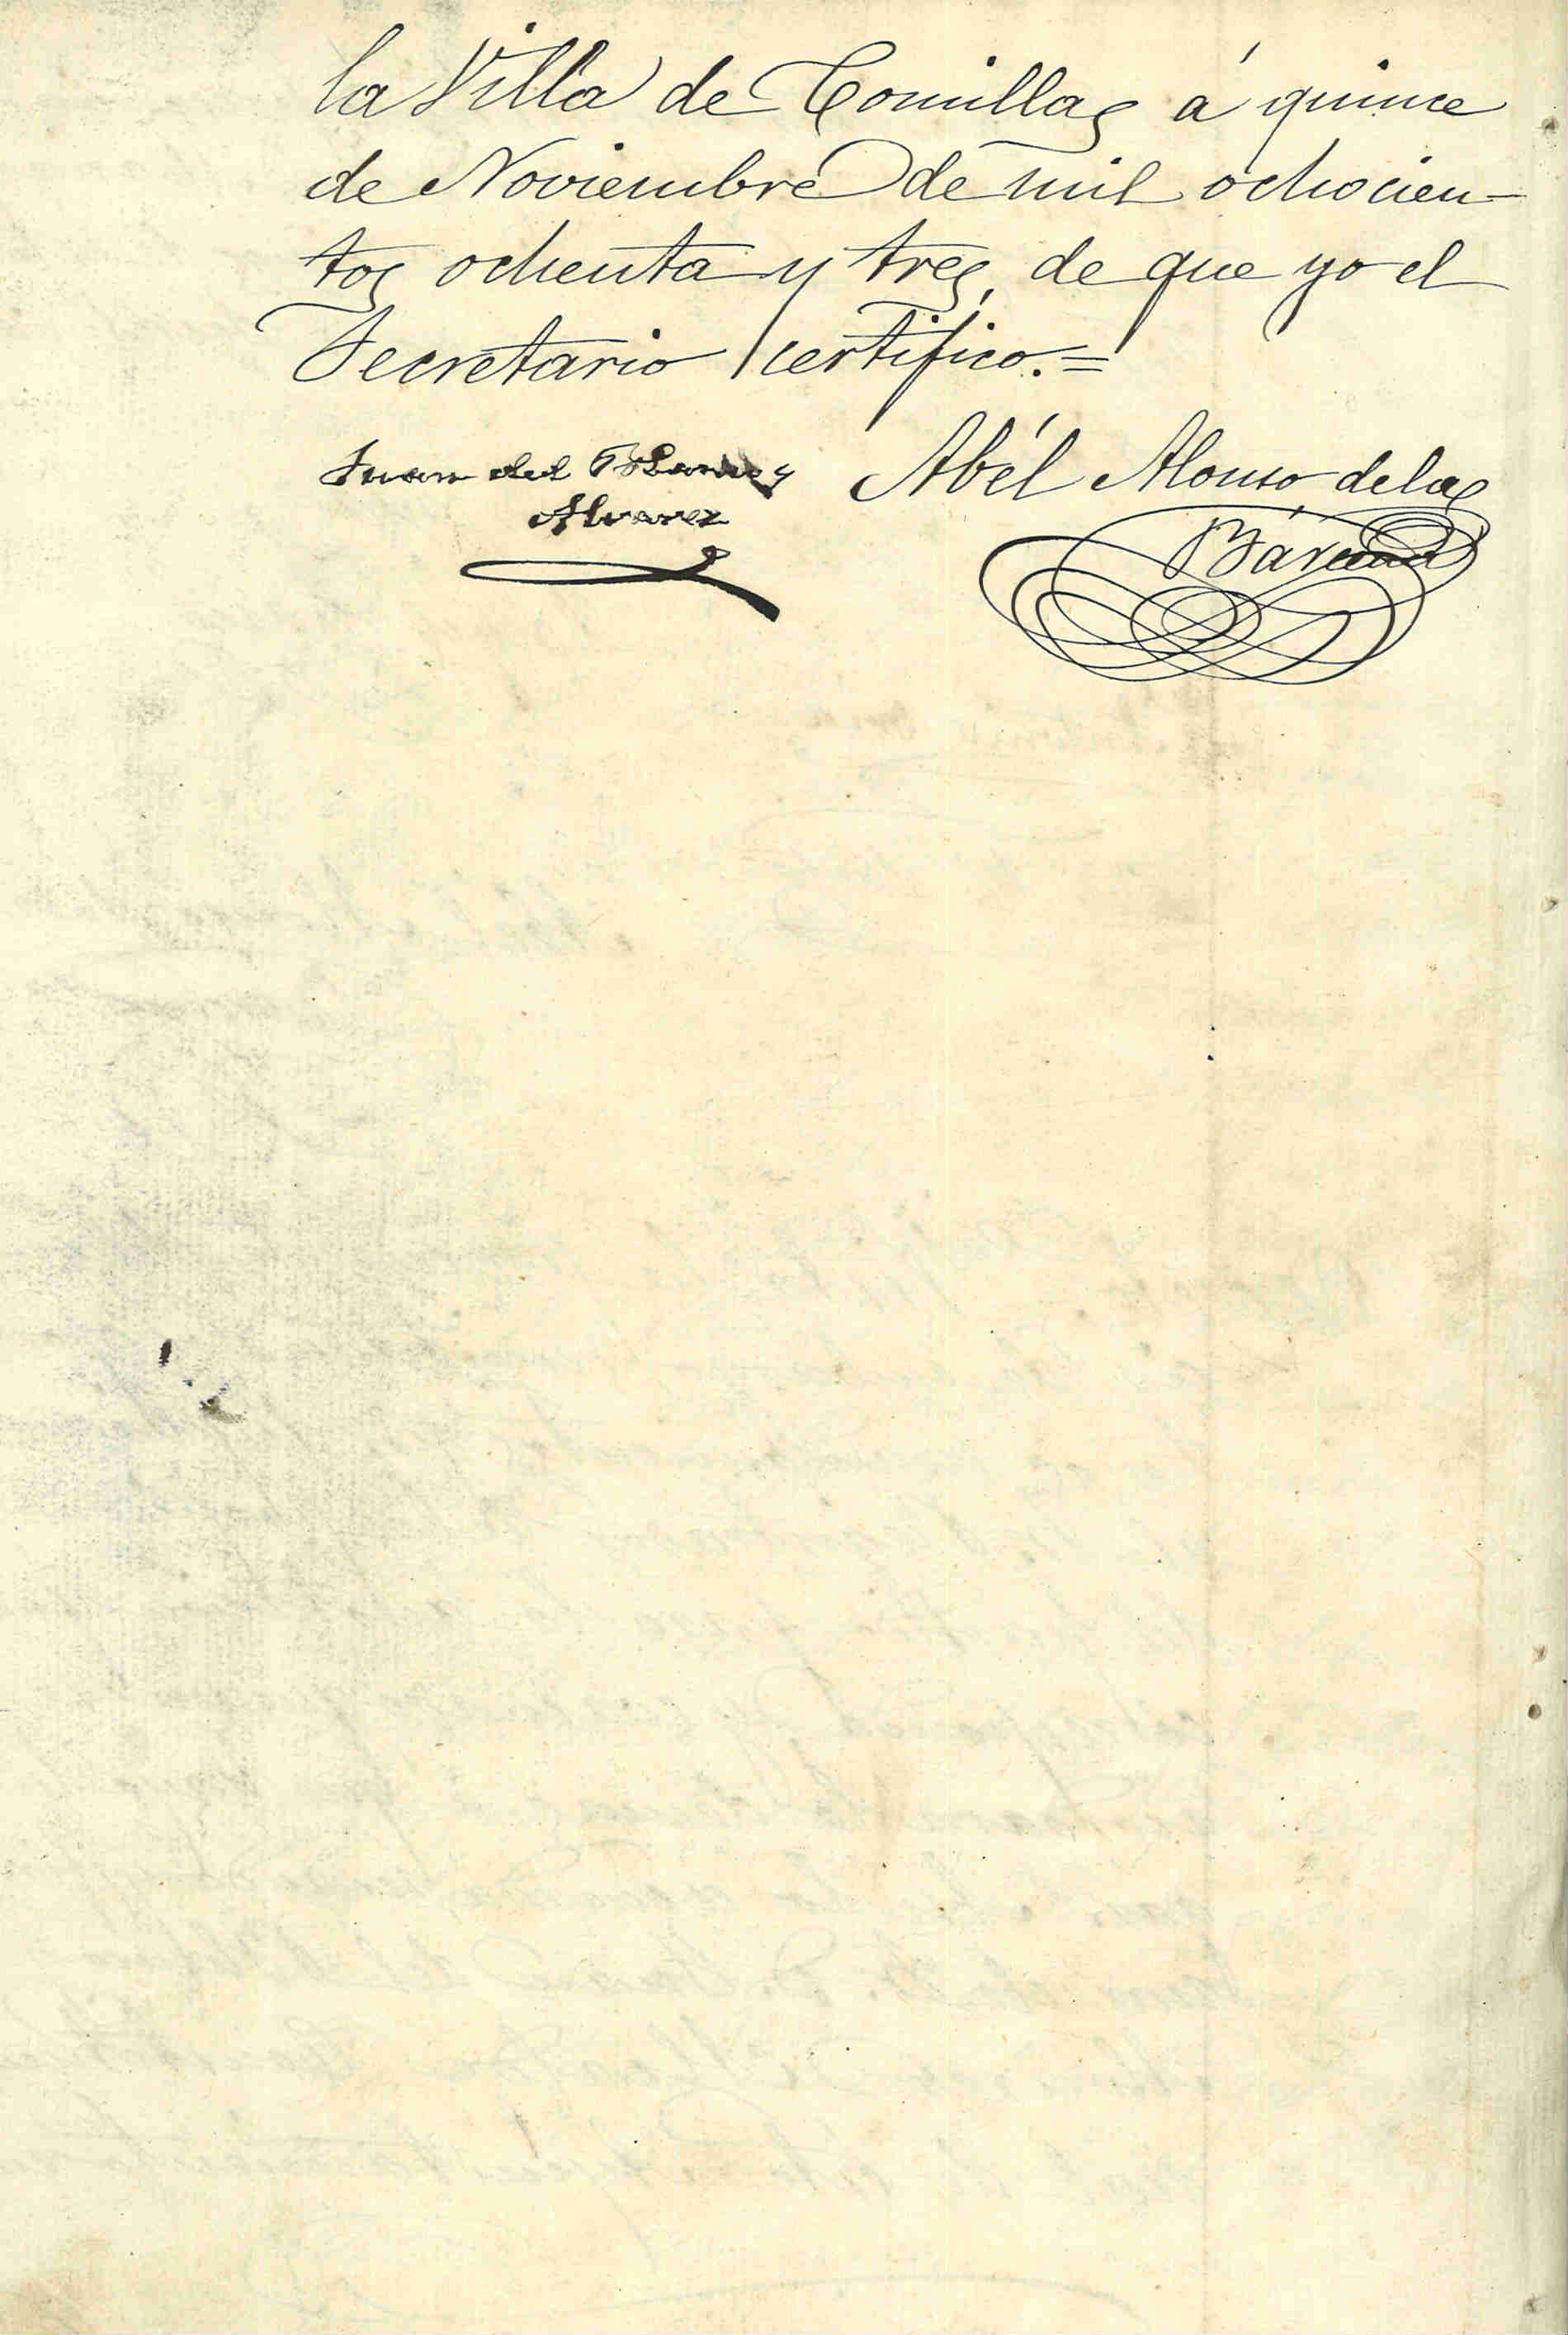 la Villa de Comillas á quince
de Noviembre de mil ochocien-
tos ochenta y tres, de que yo el
Secretario certifico.=
Juan del
Alvarez
Abél Alonso de las
Bárcenas